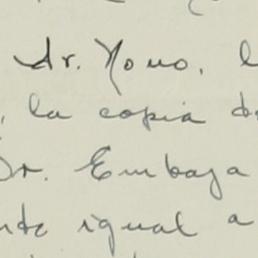 dr. Nono, l
, la copia d
Dr. Embaja
nde igual a